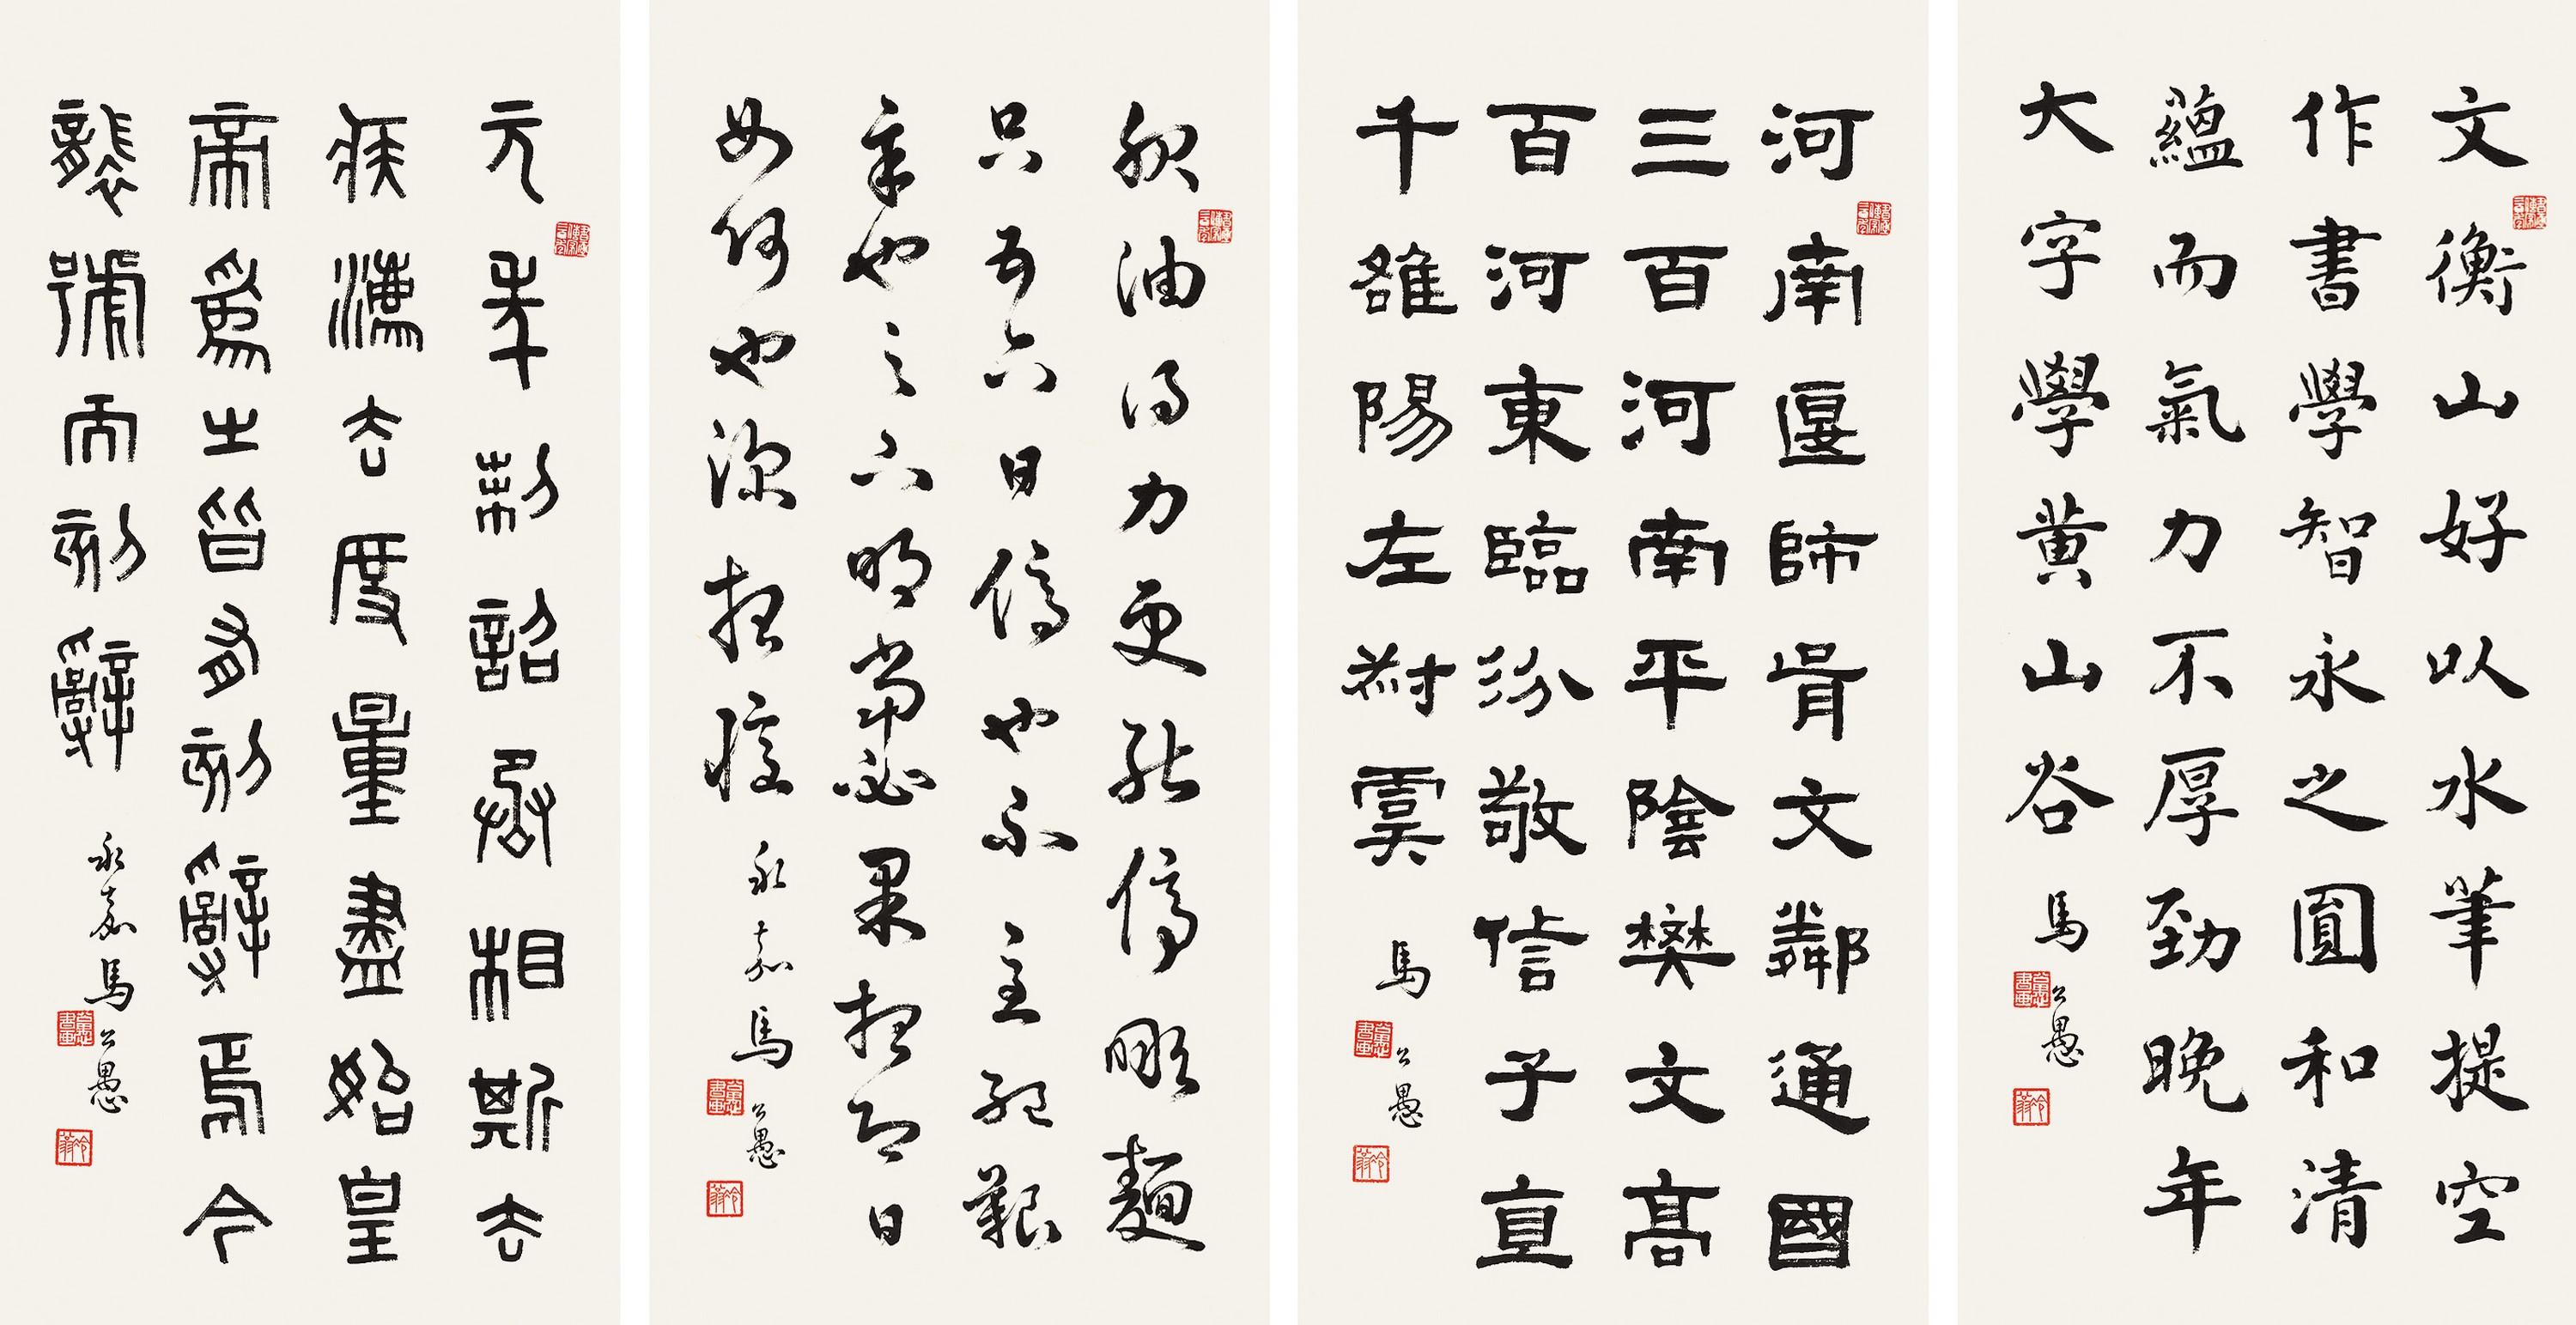 文衡山好以水筆提空
作書學智永之圓和清
蘊而氣力不厚勁晚年
大字學黄山谷
馬公愚
河南匽師胥文鄰通國
三百河南平陰樊文高
百河東臨汾敬信子直
千雒陽左尉虞
馬公愚
服油得力更能停噉麵
只五六日停也不至絕艱
辛也足下明當必果想即日
如何也深想憶
永嘉馬公愚
元年制詔丞相斯去
疾灋度量盡始皇
帝爲之皆有刻辭焉今
襲號而刻辭
永嘉馬公愚